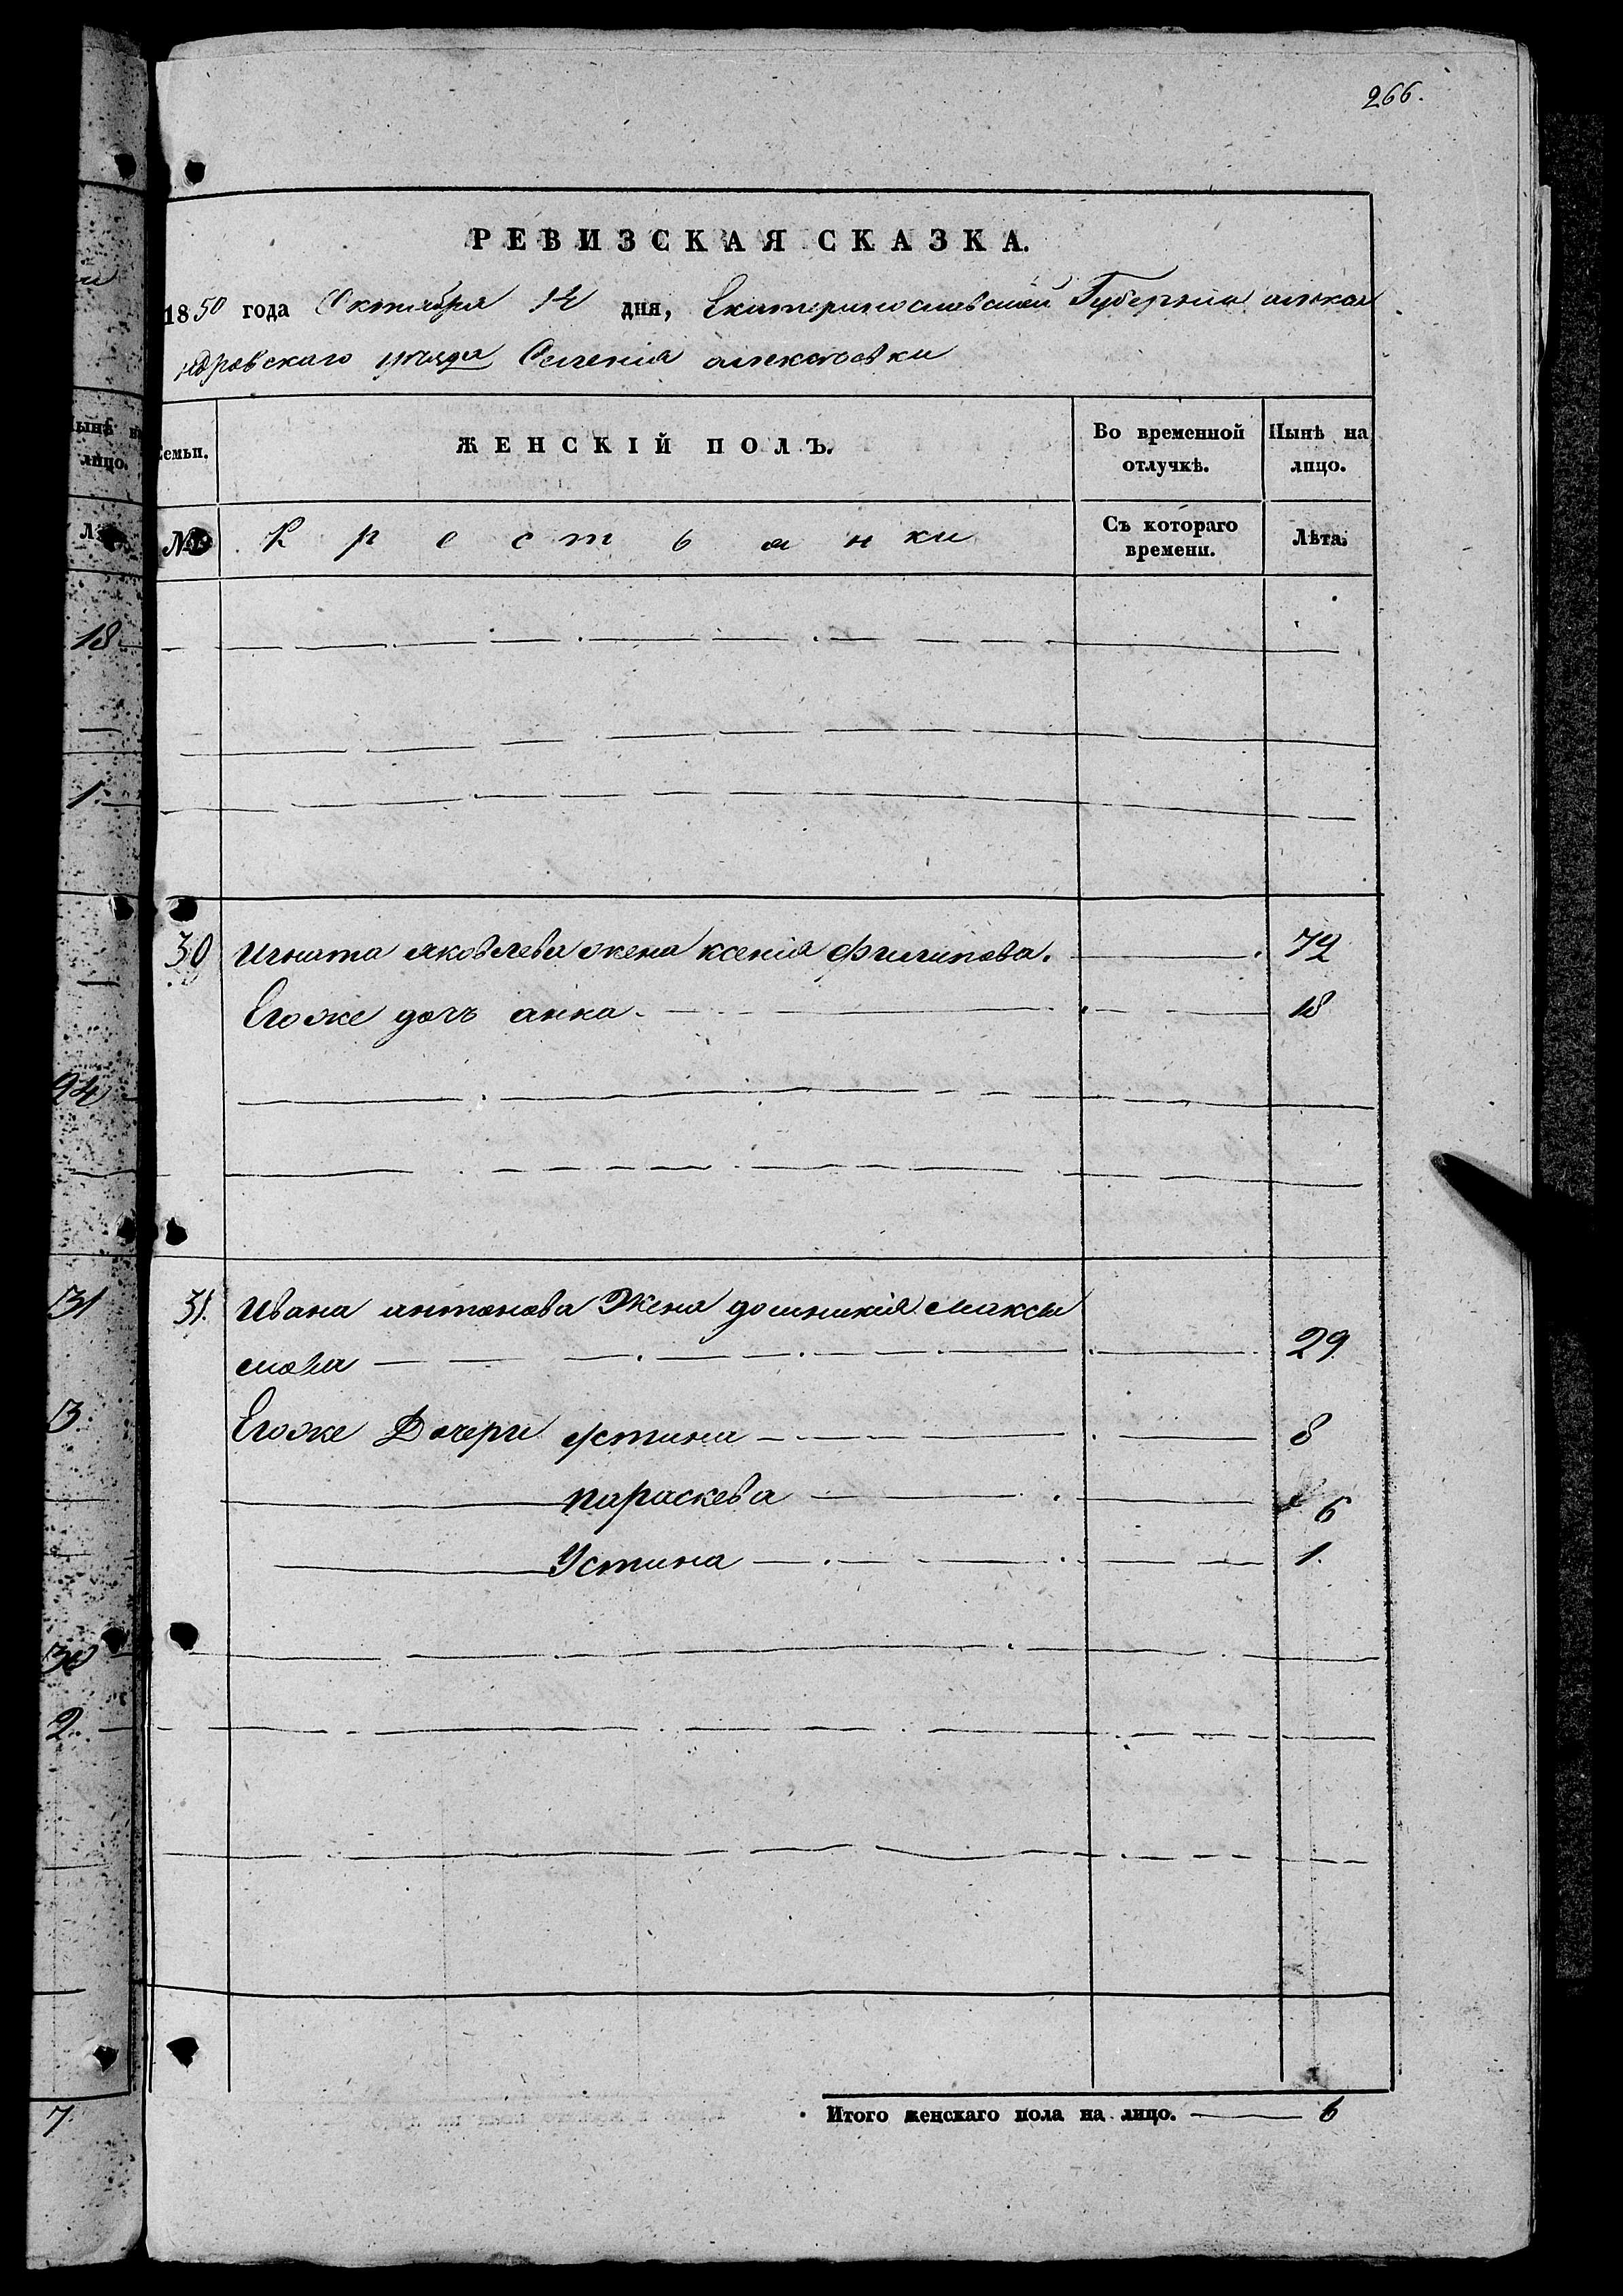 266.
РЕВИЗСКАЯ СКАЗКА.
1850 года Октября 14 дня, Екатеринославской Губернии алекса
ндровскаго уезда Селенія алексеевки
Семьи.
ЖЕНСКІЙ ПОЛЪ.
Во временной отлучкѣ.
Нынѣ на лицо.
№ Крестьянки
Съ котораго времени.
Лѣта.
30 Игната яковлева жена ксенія филипова. 72
Егоже дочъ анна 18
31. Ивана антонова Жена домникія максы
мова 29
Егоже Дочери устина 8
параскева 6
Устина 1.
Итого женскаго пола на лицо. 6
Нынѣ
лицо.
18
1.
94
31
3.
30
2.
7.